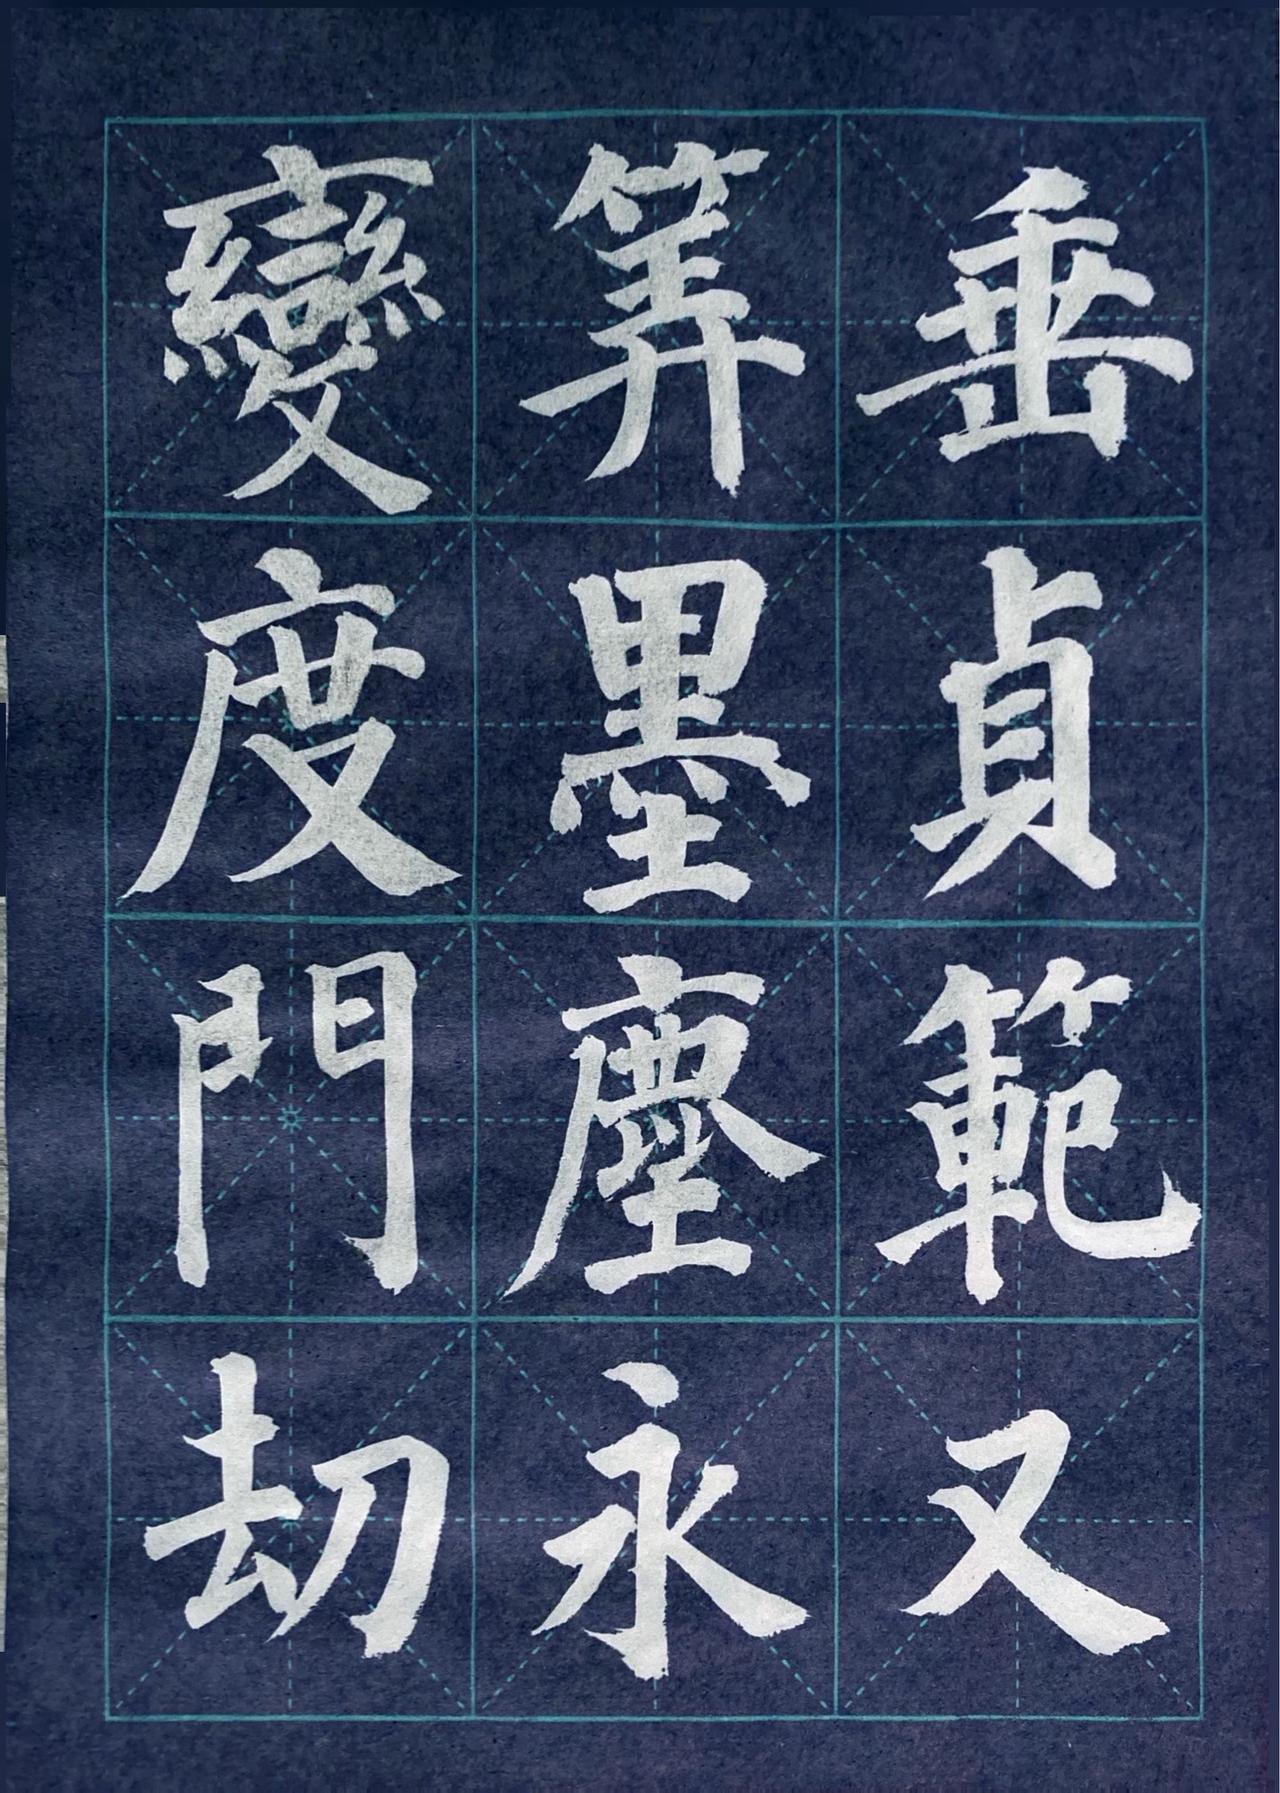 垂貞範又
筭墨塵永
變度門刧